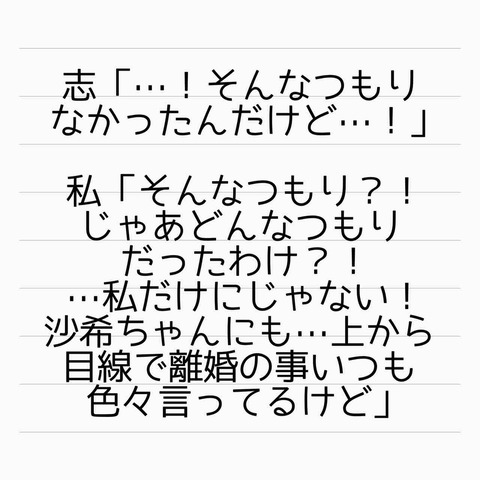 志「…！そんなつもり
なかったんだけど…！」
私「そんなつもり？！
じゃあどんなつもり
だったわけ？！
…私だけにじゃない！
沙希ちゃんにも…上から
目線で離婚の事いつも
色々言ってるけど」